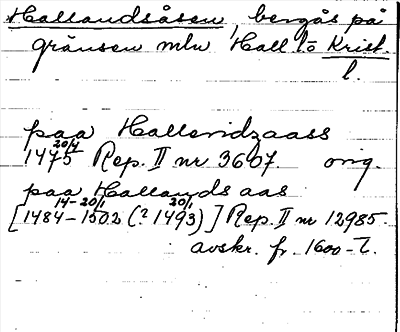 Hallandsåsen, bergås på
gränsen mln Hall. o Krist.
l.
paa Hallendzaass
20/4
1475 Rep. II nr 3607. orig.
paa Hallands aas
14-20/1 20/1
[1484-1502 (? 1493)] Rep. II nr 12985.
avskr. fr. 1600-t.